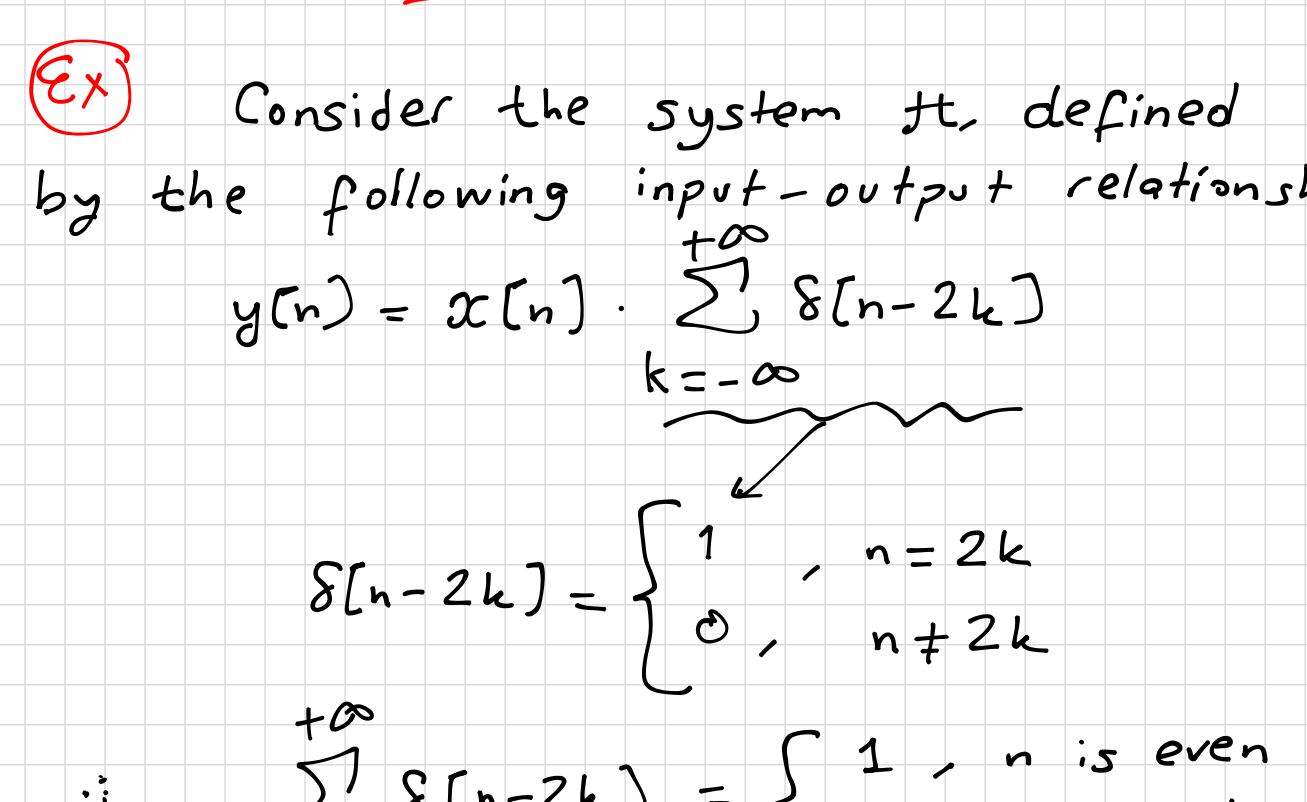 Ex
Consider the system H, defined
by the following input-output
y[n] = x[n] . +∞ Σ k=-∞ δ[n-2k]
δ[n-2k] = { 1 , n = 2k
0 , n ≠ 2k
∴ +∞ Σ δ[n-2k] = { 1 , n is even